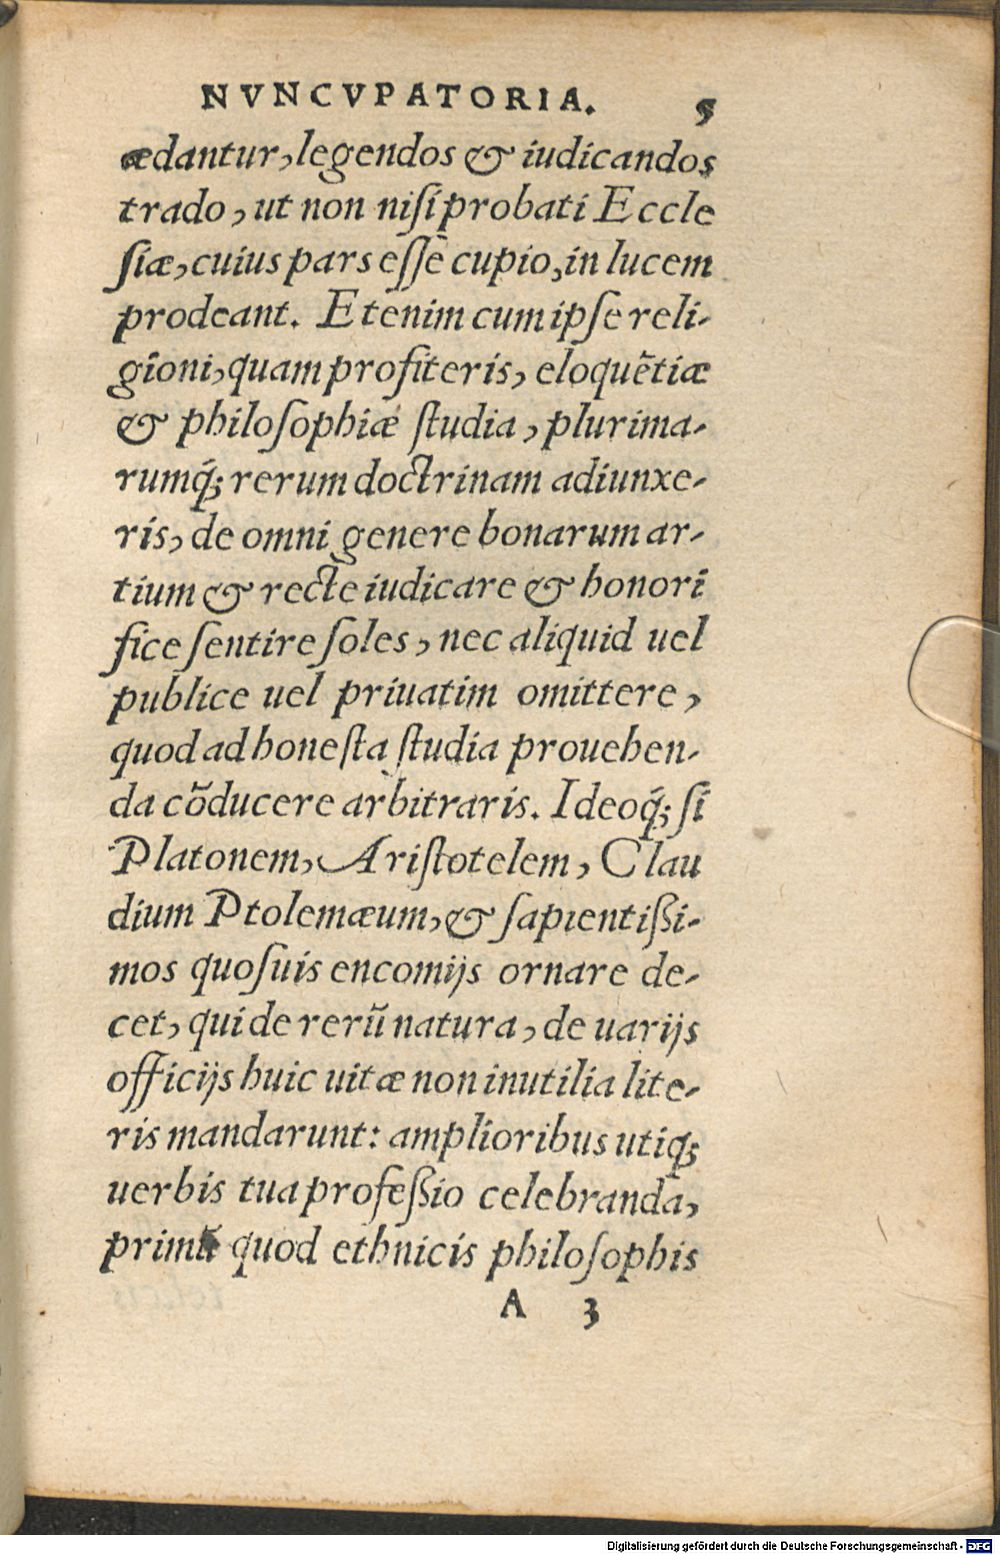 NVNCVPATORIA. 5
ædantur, legendos & iudicandos
trado, ut non nisi probati Eccle
siæ, cuius pars esse cupio, in lucem
prodeant. Etenim cum ipse reli-
gioni, quam profiteris, eloquẽtiæ
& philosophiæ studia, plurima-
rumq́; rerum doctrinam adiunxe-
ris, de omni genere bonarum ar-
tium & recte iudicare & honori
fice sentire soles, nec aliquid uel
publice uel priuatim omittere,
quod ad honesta studia prouehen-
da cõducere arbitraris. Ideoq́; si
Platonem, Aristotelem, Clau
dium Ptolemæum, & sapientißi-
mos quosuis encomijs ornare de-
cet, qui de rerũ natura, de uarijs
officijs huic uitæ non inutilia lite-
ris mandarunt: amplioribus utiq;
uerbis tua profeßio celebranda,
primũ quod ethnicis philosophis
A 3
Digitalisierung gefördert durch die Deutsche Forschungsgemeinschaft - DFG